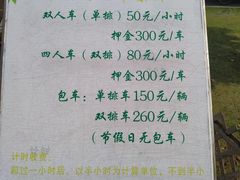 双人车(单排)50元/小时
押金300元/车
四人车(双排)80元/小时
押金300元/车
包车:单排车150元/辆
双排车260元/辆
(节假日无包车)
计时收费:
超过一小时后,以半小时为计算单位,不到半小